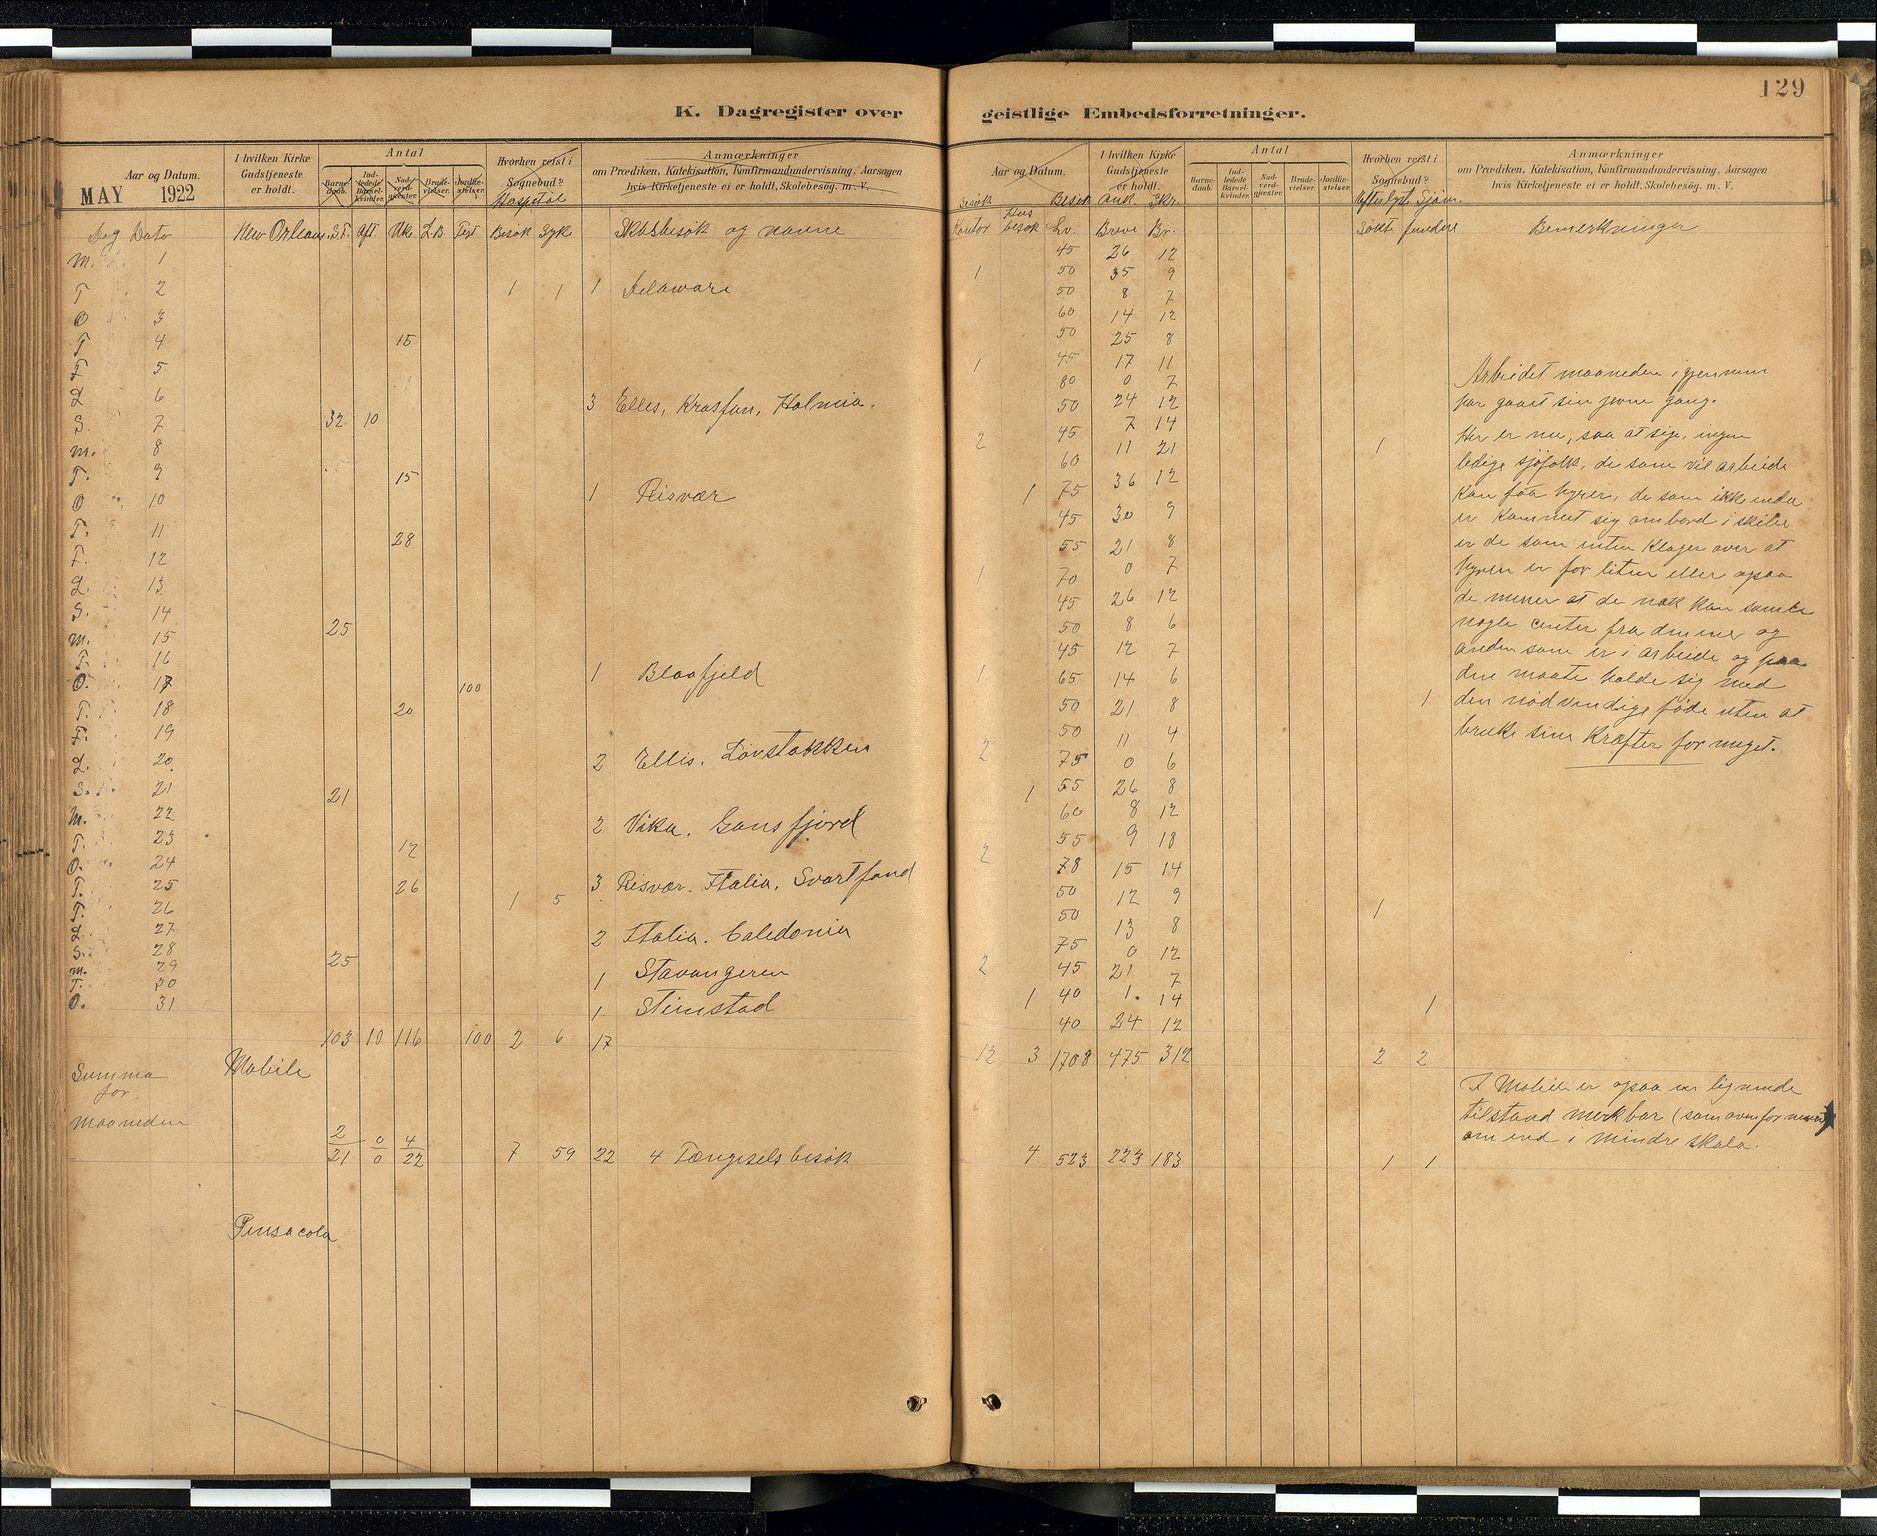 129
K. Dagregister over geistlige Embedsforretninger.
MAY 1922
Aar og Datum.
I hvilken Kirke Gudstjeneste er holdt.
Antal
Barne-daab.
Ind-ledede Barsel-kvinder.
Nad-verd-gjæster.
Brude-vielser.
Jordfæ-stelser.
Hvorhen reist i Sognebud?
Anmærkninger
om Prædiken, Katekisation, Konfirmandundervisning, Aarsagen
hvis Kirketjeneste ei er holdt, Skolebesøg. m. V.
Hospital
Dag Dato New Orleans S.T. Aft Uke L.B. Fest Besøk Syk Skibsbesøk og navne
M. 1
T 2 1 1 1 Delaware
O 3
T 4 15
F 5
L 6 3 Elles, Krosfon, Holmia.
S. 7 32 10
M. 8
T. 9 15
O 10 1 Risvær
T. 11 28
F. 12
L. 13
S. 14 25
M. 15
T. 16 1 Blaafjeld
O. 17 100
T. 18 20
F. 19
L. 20 2 Ellis. Lovstakken
S. 21 21
M. 22 2 Vika. Gansfjord
T. 23 12
O. 24 3 Risvær. Italia. Svartfond
T. 25 26 1 5
F. 26 2 Italia. Caledonia
L. 27
S. 28 25 1 Stavangeren
M. 29
T. 30 1 Stinstad
O. 31
103 10 116 100 2 6 17
Summa for maaneden
Mobile
2/21 0/0 4/22 7 59 22 4 Fængselsbesøk
Pensacola
Aar og Datum.
I hvilken Kirke Gudstjeneste er holdt.
Antal
Barne-daab.
Ind-ledede Barsel-kvinder.
Nad-verd-gjæster.
Brude-vielser.
Jordfæ-stelser.
Hvorhen reist i Sognebud?
Anmærkninger
om Prædiken, Katekisation, Konfirmandundervisning, Aarsagen
hvis Kirketjeneste ei er holdt, Skolebesøg. m. V.
Besøk Hus Besøk Ank. Skr. Efterlyst Sjøm.
Kontor besøk Lv. Breve Br. Søkte fundne Bemerkninger
45 26 12
1 50 35 9
50 8 7
60 14 12
50 25 8
1 45 17 11
80 0 7
50 24 12
45 7 14
2 60 11 21 1
1 75 36 12
45 30 9
55 21 8
1 70 0 7
45 26 12
50 8 6
45 12 7
1 65 14 6
50 21 8 1
50 11 4
2 75 0 6
1 55 26 8
60 8 12
55 9 18
2 78 15 14
50 12 9
50 13 8 1
75 0 12
2 45 21 7
1 40 1 14 1
40 24 12
12 3 1708 475 312 2 2
4 523 223 183 1 1
Arbeidet maaneden igjennem
har gaaet sin jevne gang.
Her er nu, saa at sige, ingen
ledige sjøfolk, de som vil arbeide
kan faa hyrer, de som ikke enda
er kommet sig ombord i skibe
er de som enten klager over at
hyren er for liten eller ogsaa
de mener at de nok kan samle
nogle center fra den ene og
anden som er i arbeide og paa
den maate holde sig med
den nødvendige føde uten at
bruke sine kræfter for meget.
I Mobile er ogsaa en lignende
tilstand merkbar (som ovenfor nævnt)
om end i mindre skala.